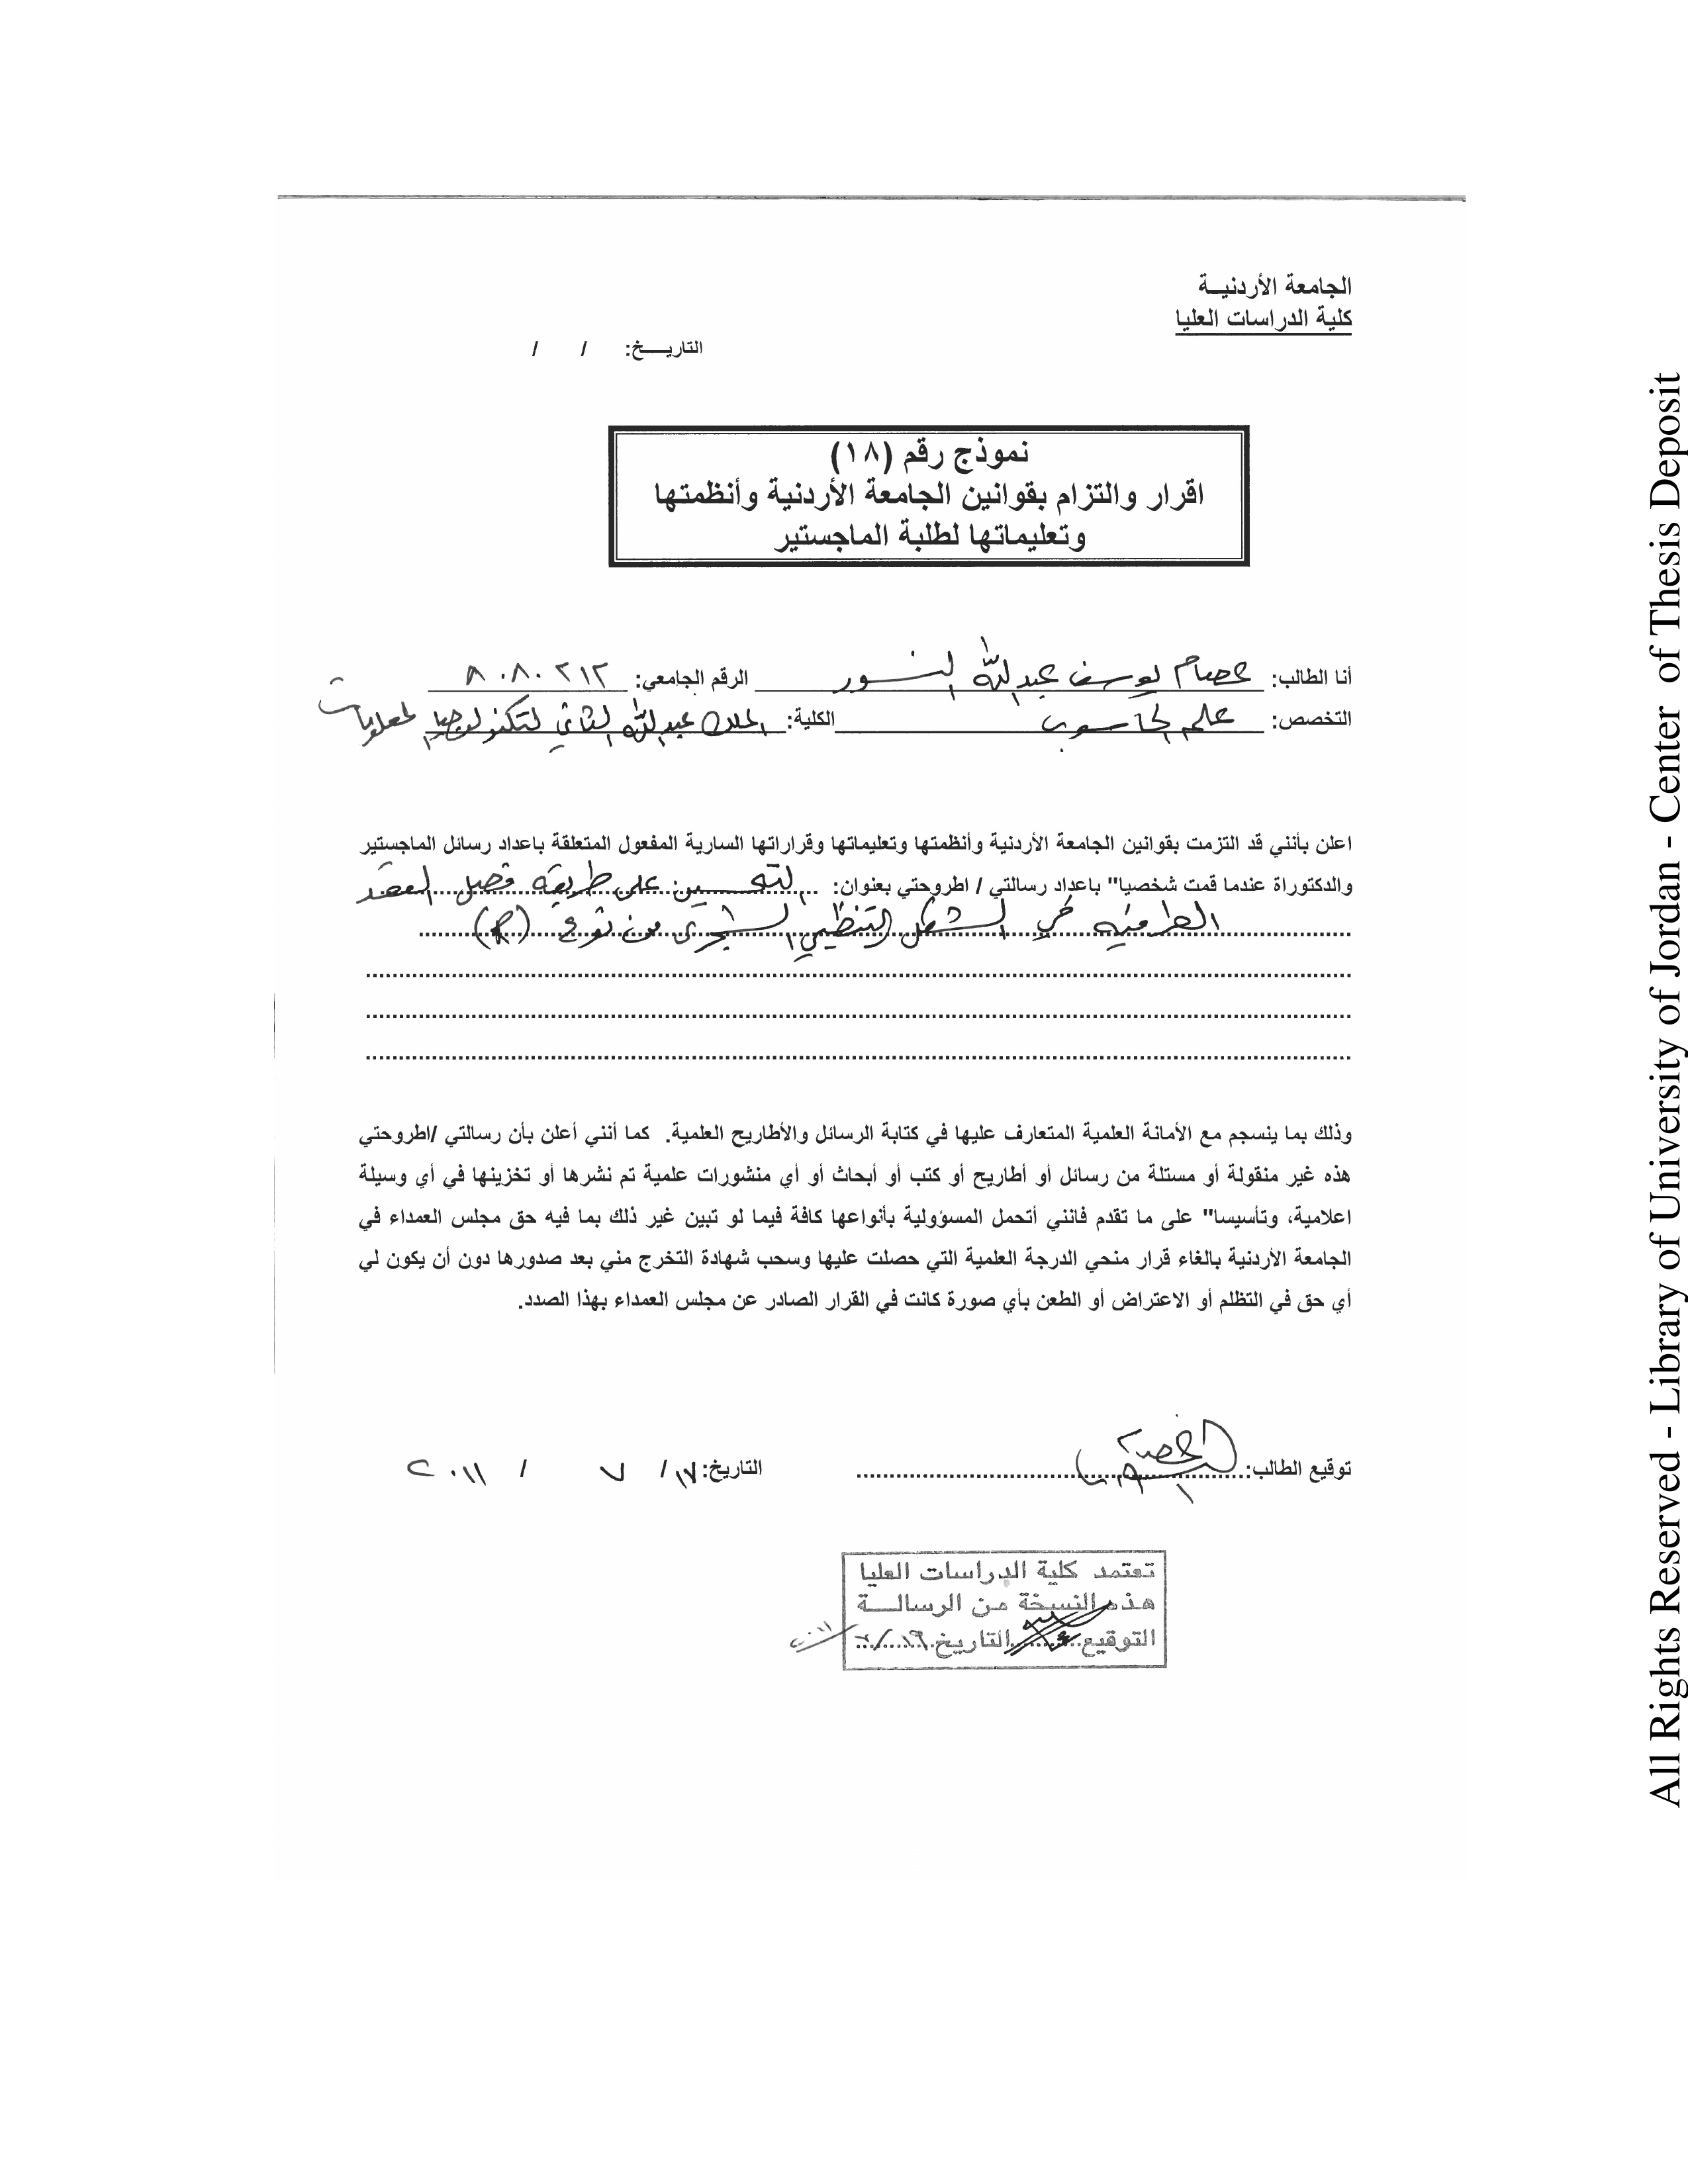 الجامعة الأردنيــة
كلية الدراسات العليا
التاريـــخ: / /
نموذج رقم (١٨)
اقرار والتزام بقوانين الجامعة الأردنية وأنظمتها
وتعليماتها لطلبة الماجستير
أنا الطالب: عصام يوسف عبدالله النسور الرقم الجامعي: ٨٠٨٠٢١٢
التخصص: علم الحاسوب الكلية: الملك عبدالله الثاني لتكنولوجيا المعلومات
اعلن بأنني قد التزمت بقوانين الجامعة الأردنية وأنظمتها وتعليماتها وقراراتها السارية المفعول المتعلقة باعداد رسائل الماجستير
والدكتوراة عندما قمت شخصيا" باعداد رسالتي / اطروحتي بعنوان: التحسين على طريقة فصل العقد
الطرفيه في الشكل التنظيمي الشجري من نوع (R)
وذلك بما ينسجم مع الأمانة العلمية المتعارف عليها في كتابة الرسائل والأطاريح العلمية. كما أنني أعلن بأن رسالتي /اطروحتي
هذه غير منقولة أو مستلة من رسائل أو أطاريح أو كتب أو أبحاث أو أي منشورات علمية تم نشرها أو تخزينها في أي وسيلة
اعلامية، وتأسيسا" على ما تقدم فانني أتحمل المسؤولية بأنواعها كافة فيما لو تبين غير ذلك بما فيه حق مجلس العمداء في
الجامعة الأردنية بالغاء قرار منحي الدرجة العلمية التي حصلت عليها وسحب شهادة التخرج مني بعد صدورها دون أن يكون لي
أي حق في التظلم أو الاعتراض أو الطعن بأي صورة كانت في القرار الصادر عن مجلس العمداء بهذا الصدد.
توقيع الطالب: التاريخ: ١٧/ ٧ / ٢٠١١
تعتمد كلية الدراسات العليا
هذه النسخة من الرسالــة
التوقيع التاريخ
All Rights Reserved - Library of University of Jordan - Center of Thesis Deposit